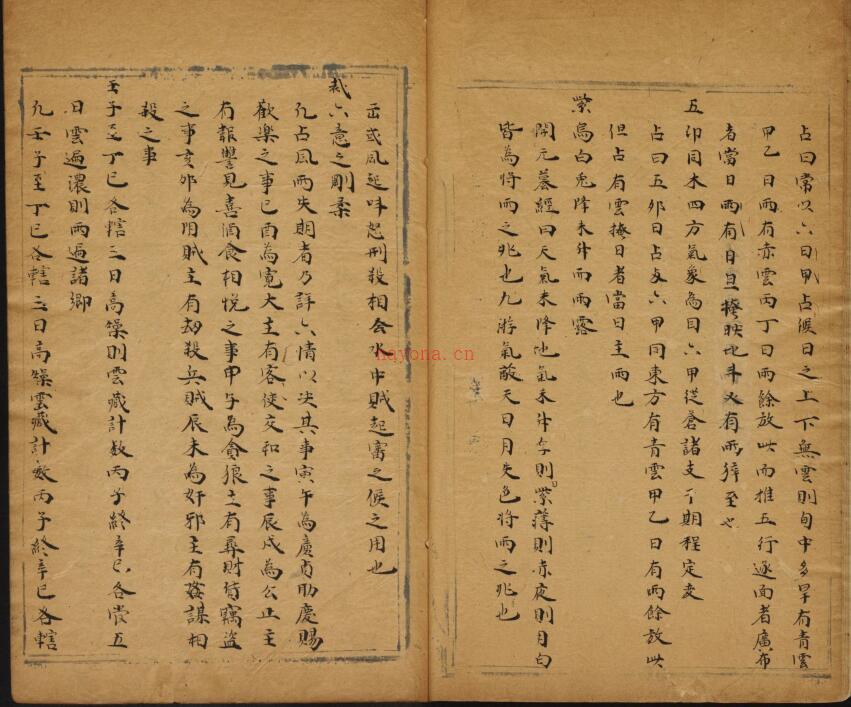 占曰常以六日甲占候日之上下無雲則旬中多旱有青雲
甲乙日雨有赤雲丙丁日雨餘放此而推五行逐面者廣布
者當日雨有日旦掩映北斗又有雨猝至也
五卯同木四方氣象為目六甲從蒼諸支下期程定支
占曰五卯日占与六甲同東方有青雲甲乙日有雨餘放此
但占有雲掩日者當日主雨也
紫烏白兎降未升而雨露
開元葢經曰天氣未降地氣未升与則紫薄則赤夜則月白
皆為將雨之兆也凡游氣蔽天日月失色將雨之兆也
hayona.cn
風延時起刑殺相合水中賊起害之候之用也
哉六意之剛柔
凡占風雨失期者乃詳六情以决其事寅午為廣貞助慶賜
歡樂之事巳酉為寬大主有客使交和之事辰戌為公正主
有報讐見喜酒食相悅之事申子為貪狼主有尋財皆竊盜
之事亥卯為陰賊主有刼殺兵賊辰未為奸邪主有姦謀相
殺之事
壬子至丁巳各轄三日高燥則雲藏計数丙子終辛巳各當五
日雲遍濃則雨遍諸鄉
凡壬子至丁巳各轄三日高燥雲藏計数丙子終辛巳各轄